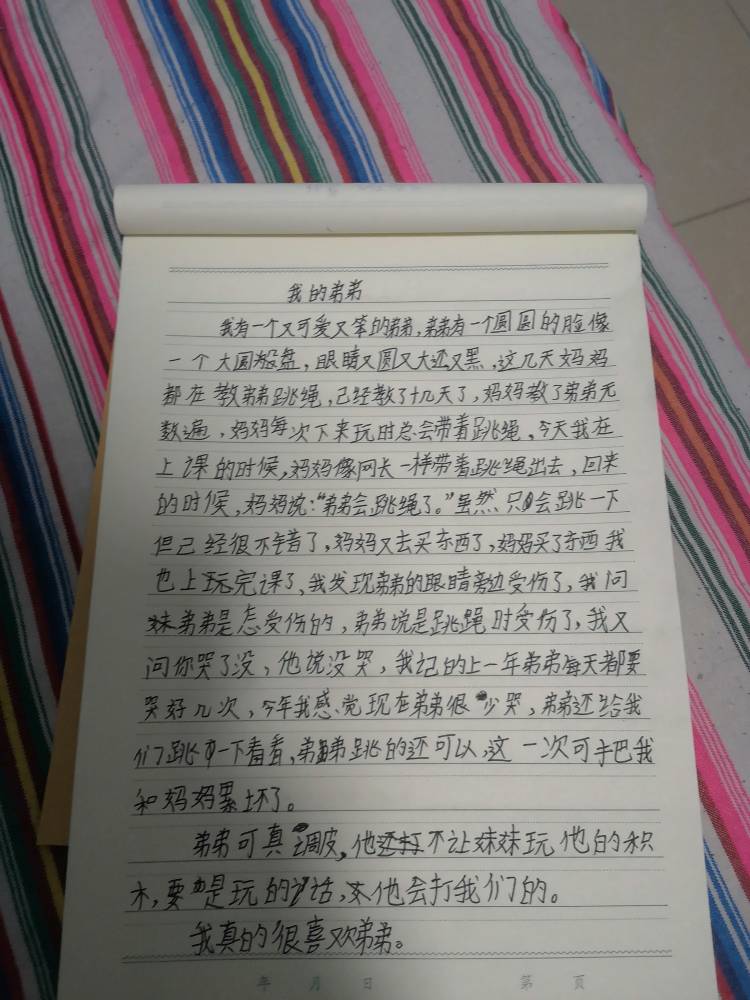 我的弟弟
我有一个又可爱又笨的弟弟,弟弟有一个圆圆的脸像
一个大圆般盘,眼睛又圆又大还又黑,这几天妈妈
都在教弟弟跳绳,己经教了十几天了,妈妈教了弟弟无
数遍,妈妈每次下来玩时总会带着跳绳,今天我在
上课的时候,妈妈像冈长一样带着跳绳出去,回来
的时候,妈妈说:“弟弟会跳绳了。”虽然只会跳一下
但己经很不错了,妈妈又去买东西了,妈妈买了东西我
也上玩完课了、我发现弟弟的眼睛旁边受伤了,我问
弟弟是怎受伤的,弟弟说是跳绳时受伤了,我又
问你哭了没,他说没哭,我记的上一年弟弟每天都要
哭好几次,今年我感觉现在弟弟很少哭,弟弟还给我
们跳一下看看,弟弟跳的还可以,这一次可手把我
和妈妈累坏了。
弟弟可真调皮,他不让妹妹玩他的积
木,要是玩的话,他会打我们的。
我真的很喜欢弟弟。
年 月 日 第 页